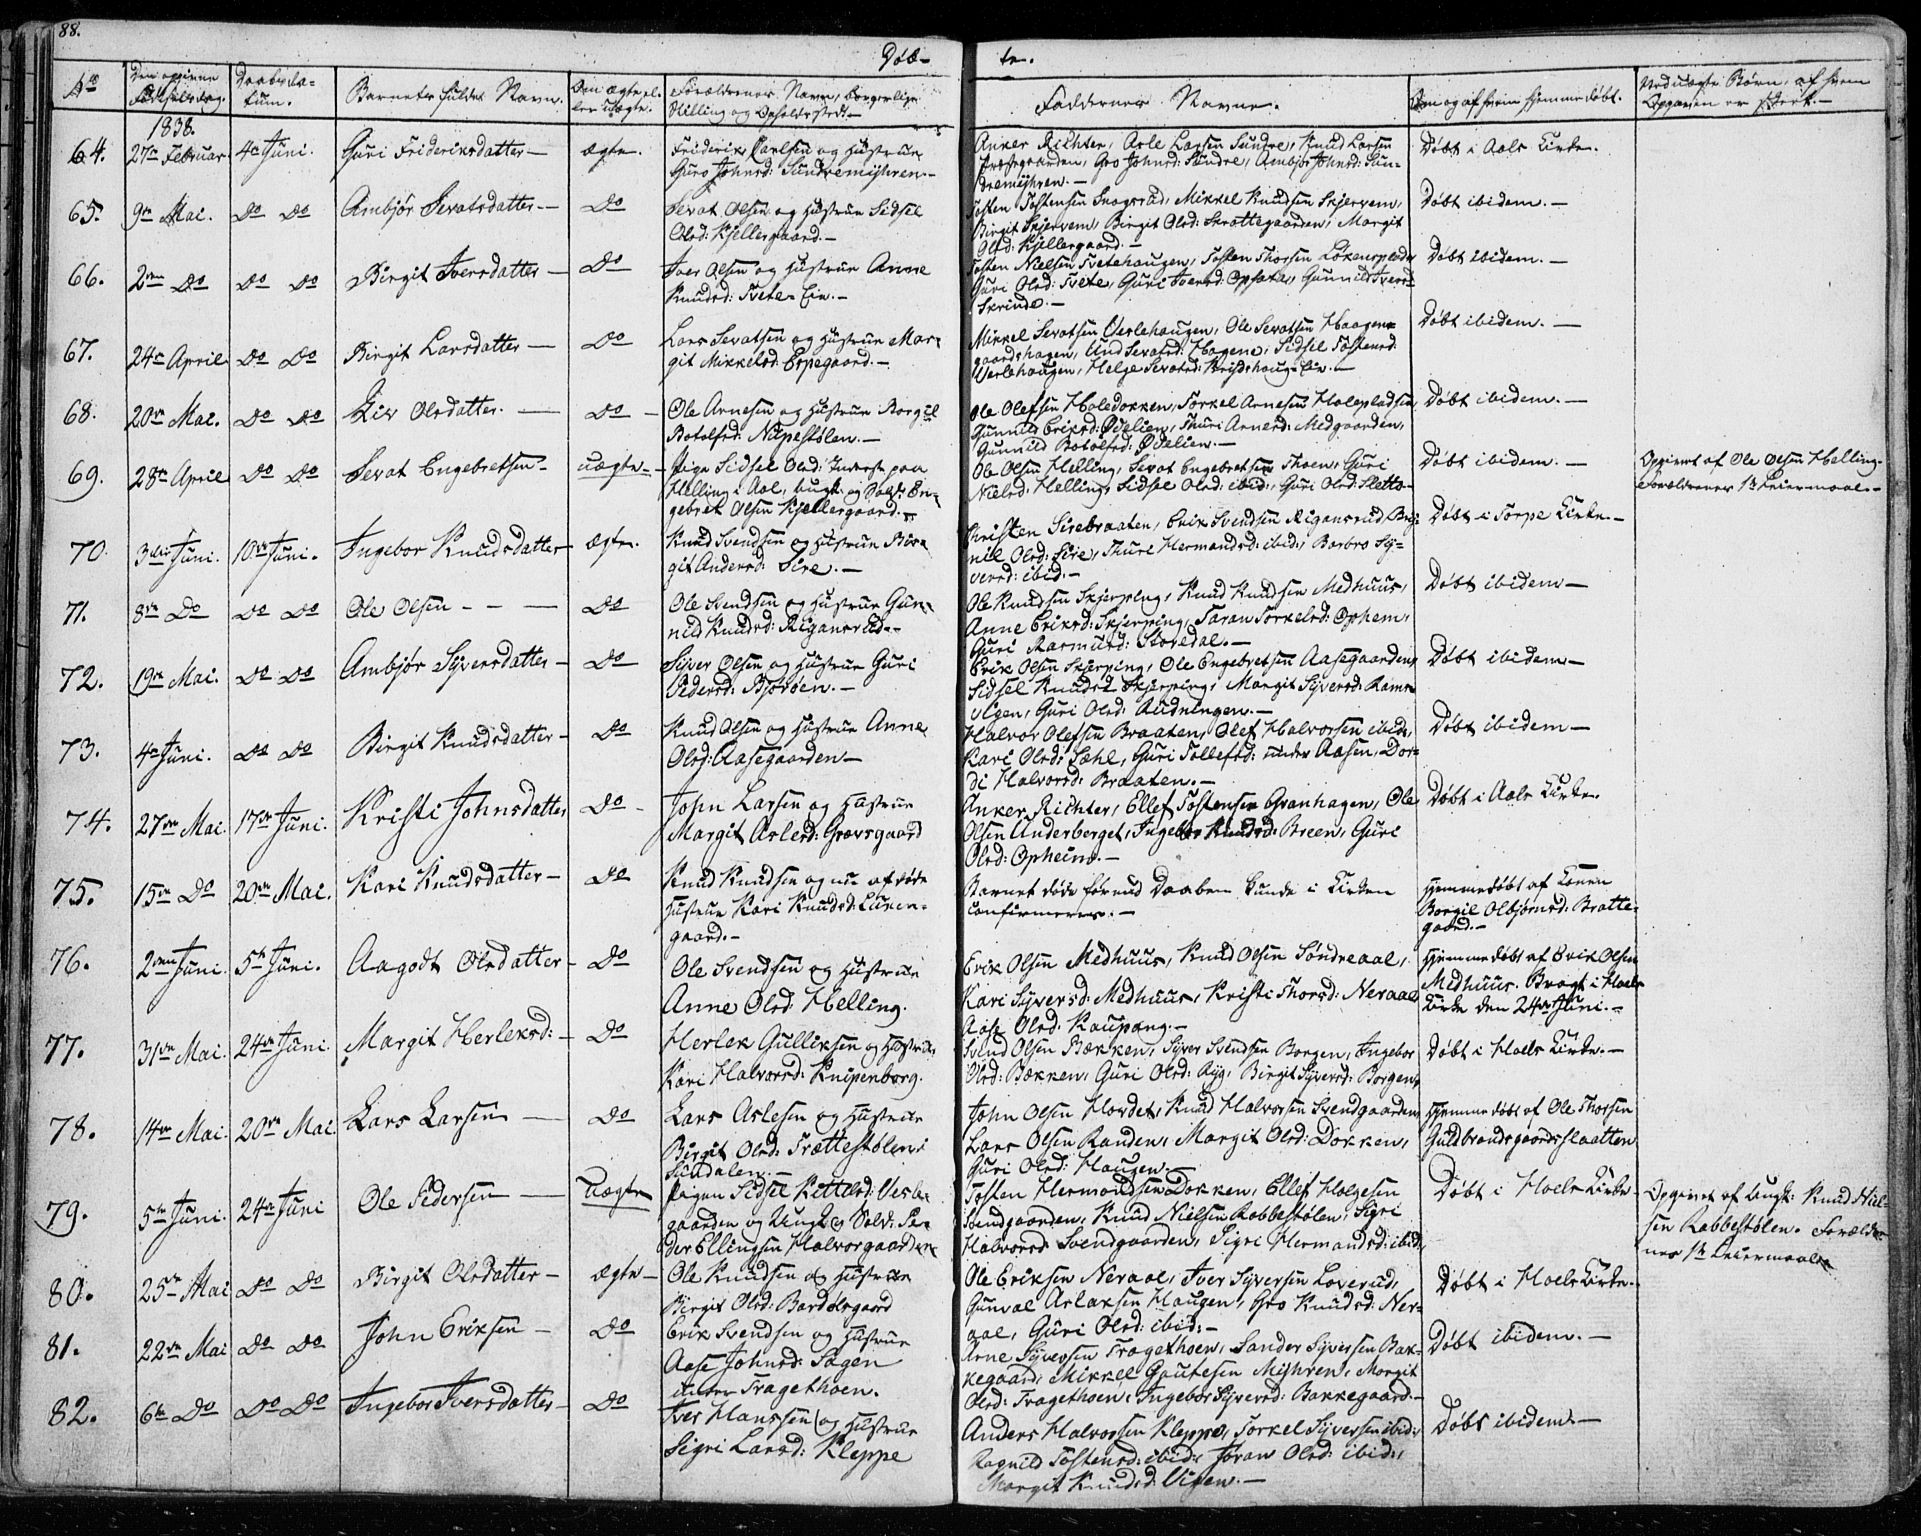 88.
Døb-
te.
No
Den opgivne
Fødselsdag.
Daabsda-
tum.
Barnets fulde Navn.
Om ægte el-
ler uægte.
Forældrenes Navn, borgerlige
Stilling og Opholdssted.
Faddernes Navne.
Om og af hvem hjemmedøbt.
Ved uægte Børn, af hvem
Opgaven er skeet.
1838.
64. 27de Februar. 4de Juni. Guri Frideriksdatter — ægte.
Friderik Carlsen og Hustrue
Guro Johnsd: Sundremyhren.
Anker Richter, Asle Larsen Sundre, Knud Larsen
Præstegaarden, Gro Johnsd: Sundre, Ambjør Johnsd: Sun-
dremyhren. —
Døbt i Aals Kirke.
65. 9de Mai. Do Do Ambjør Sevatsdatter — Do
Sevat Olsen og Hustrue Sidsel
Olsd: Kjellergaard. —
Tosten Tostensen Snogsrud, Mikkel Knudsen Skjervem,
Birgit Skjervem, Birgit Olsd: Skrattegaarden, Margit
Olsd: Kjellergaard. —
Døbt ibidem. —
66. 2den Do Do Do Birgit Iversdatter — Do
Iver Olsen og Hustrue Anne
Knudsd: Tvete-Eie. —
Tosten Nielsen Tvetehaugen, Tosten Thorsen Løkensplads,
Guri Olsd: Tvete, Guri Iversd: Opsata, Gunnild Iversd:
Skrinde. —
Døbt ibidem. —
67. 24de April Do Do Birgit Larsdatter — Do
Lars Sevatsen og Hustrue Mar-
git Mikkelsd: Espegaard. —
Mikkel Sevatsen Værlehaugen, Ole Sevatsen Haagens-
gaardshagen, Und Sevatsd: Hagene, Sidsel Tostensd:
Værlehaugen, Helge Sevatsd: Eie. —
Døbt ibidem. —
68. 20de Mai. Do Do Liv Olsdatter. — Do —
Ole Arnesen og Hustrue Borgil
Botolfsd: Nupestølen. —
Ole Olefsen Holedokken, Torkel Arnesen Holepladsen,
Gunnild Eriksd: Ødelien, Thuri Arnesd: Medgaarden,
Gunnild Botolfsd: Ødelien. —
Døbt ibidem. —
69. 28de April Do Do Sevat Engebretsen — uægte —
Pige Sidsel Olsd: Inderst paa
Helling i Aal, Ungk. og Sold: En-
gebret Olsen Kjellergaard. —
Ole Olsen Helling, Sevat Engebretsen Thoen, Guri
Nielsd: Helling, Sidsel Olsd: ibid:, Guri Olsd: Sletto-
Døbt ibidem. —
Opgivet af Ole Olsen Helling.
Forældrenes 1ste Leiermaal. —
70. 3die Juni. 10de Juni. Ingebor Knudsdatter ægte.
Knud Svendsen og Hustrue Bir-
git Andersd: Sire. —
Christen Sirebraaten, Erik Svendsen Rigansrud, Bri-
nil Olsd: Sire, Thuri Hermandsd: ibid:, Barbro Sy-
versd: ibid. —
Døbt i Torpe Kirke. —
71. 8de Do Do Do Ole Olsen — — — Do
Ole Svendsen og Hustrue Gun-
nild Knudsd: Rigansrud. —
Ole Knudsen Skjerping, Knud Knudsen Medhuus,
Anne Eriksd: Skjerping, Taran Torkelsd: Ophem,
Guri Rasmusd: Storedal. —
Døbt ibidem —
72. 19de Mai. Do Do Ambjør Syversdatter — Do —
Syver Olsen og Hustrue Guri
Pedersd: Bjørøen. —
Erik Olsen Skjerping, Ole Engebretsen Aasegaarden,
Sidsel Knudsd: Skjerping, Margit Syversd: Rams-
vigen, Guri Olsd: Rudningen. —
Døbt ibidem —
73. 4de Juni. Do Do Birgit Knudsdatter — Do
Knud Olsen og Hustrue Anne
Olsd: Aasegaarden —
Halvor Olefsen Braaten, Olef Halvorsen ibid:,
Kari Olsd: Sæhl, Guri Tollefsd: under Aasen, Dor-
di Halvorsd: Braaten. —
Døbt ibidem —
74. 27de Mai. 17de Juni. Kristi Johnsdatter Do —
John Larsen og Hustrue
Margit Aslesd: Grovsgaard
Anker Richter, Ellef Tostensen Granhagen, Ole
Olsen Underberget, Ingebor Knudsd: Breen, Guri
Olsd: Opheim. —
Døbt i Aals Kirke.
75. 15de Do 20de Mai. Kari Knudsdatter — Do
Knud Knudsen og nu afdøde
Hustrue Kari Knudsd:
gaard. —
Barnet døde førend Daaben kunde i Kirken
confirmeres. —
Hjemmedøbt af Konen
Borgil Olbjørnsd: Bratte-
gaard. —
76. 2den Juni. 5te Juni. Aagodt Olsdatter — Do
Ole Svendsen og Hustrue
Anne Olsd: Helling.
Erik Olsen Medhuus, Knud Olsen Søndreaal,
Kari Syversd: Medhuus, Kristi Thorsd: Neraal,
Aase Olsd: Kaupang. —
Hjemmedøbt af Erik Olsen
Medhuus. Bragt i Hoels
Kirke den 24de Juni. —
77. 31de Mai. 24de Juni. Margit Herleksd: — Do
Herlek Gulliksen og Hustrue
Kari Halvorsd: Knipenborg.
Svend Olsen Bækken, Syver Svendsen Borgen, Ingebor
Olsd: Bækken, Guri Olsd: Ryg, Birgit Syversd: Borgen,
Døbt i Hoels Kirke. —
78. 14de Mai. 20de Mai. Lars Larsen — Do
Lars Aslesen og Hustrue
Birgit Olsd: Trættestølen i
Sudalen. —
John Olsen Hovdet, Knud Halvorsen Svendgaarden,
Lars Olsen Randen, Margit Olsd: Dokken,
Guri Olsd: Haugen. —
Hjemmedøbt af Ole Thorsen
Guldbrandsgaardsslaatten
79. 5te Juni. 24de Juni Ole Pedersen — Uægte
Pigen Sidsel Kittilsd: Vesle-
gaarden og Ungk. og Sold: Pe-
der Ellingsen Halvorgaarden
Tosten Hermandsen Dokken, Ellef Holgesen
Svendgaarden, Knud Nielsen Rabbestølen, Sigri
Halvorsd: Svendgaarden, Sigri Hermandsd: ibid:
Døbt i Hoels Kirke —
Opgivet af Ungk: Knud Niel-
sen Rabbestølen. Forældre-
nes 1ste Leiermaal.
80. 25de Mai Do Do Birgit Olsdatter — ægte —
Ole Knudsen og Hustrue
Birgit Olsd: Bardolsgaard
Ole Eriksen Neraal, Iver Syversen Loverud,
Gunval Aslaksen Haugen, Gro Knudsd: Ner-
aal, Guri Olsd: ibid: —
Døbt i Hoels Kirke. —
81. 22de Mai Do Do John Eriksen — Do
Erik Svendsen og Hustrue
Aase Johnsd: Hagen
under Fragethoen.
Arne Syversen Fragethoen, Sander Syversen Bak-
kegaard, Mikkel Gautesen Myhren, Margit
Olsd: Fragethoen, Ingebor Syversd: Bakkegaard. —
Døbt ibidem. —
82. 6te Do Do Do Ingebor Iversdatter — Do
Iver Hanssen og Hustrue
Sigri Larsd: Kleppe
Anders Halvorsen Kleppe, Torkel Syversen ibid:,
Ragnild Tostensd: ibid:, Jøran Olsd: ibid:,
Margit Knudsd: Vigen. —
Døbt ibidem. —